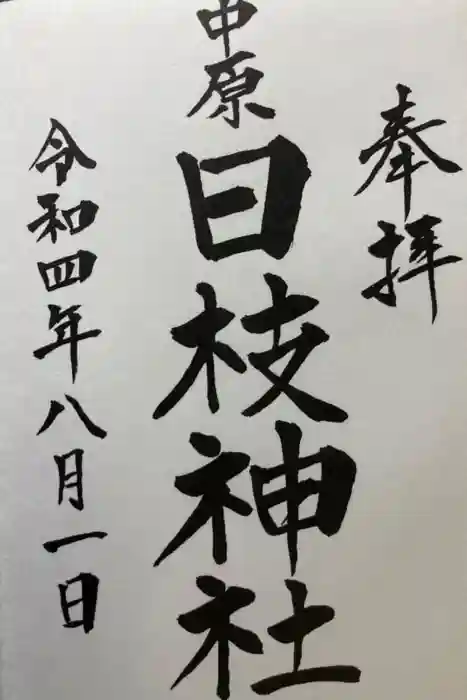 奉拝
中原
日枝神社
令和四年八月一日